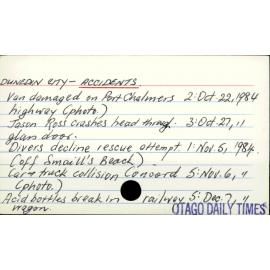 DUNEDIN CITY - ACCIDENTS
Van damaged on Port Chalmers 2: Oct 22, 1984
highway (photo.)
Jason Ross crashes head through 3: Oct 27, "
glass door.
Divers decline rescue attempt 1: Nov. 5, 1984.
(off Smaill's Beach.)
Car + truck collision Concord 5: Nov. 6, "
(photo.)
Acid bottles break in railway 5: Dec. 7, "
wagon.
OTAGO DAILY TIMES